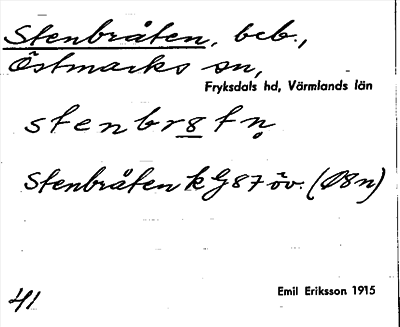 Stenbråten, beb.,
Östmarks sn,
Fryksdals hd, Värmlands län
stenbr8tn̥
Stenbråten k G87 öv. (Ø8n)
Emil Eriksson 1915
41